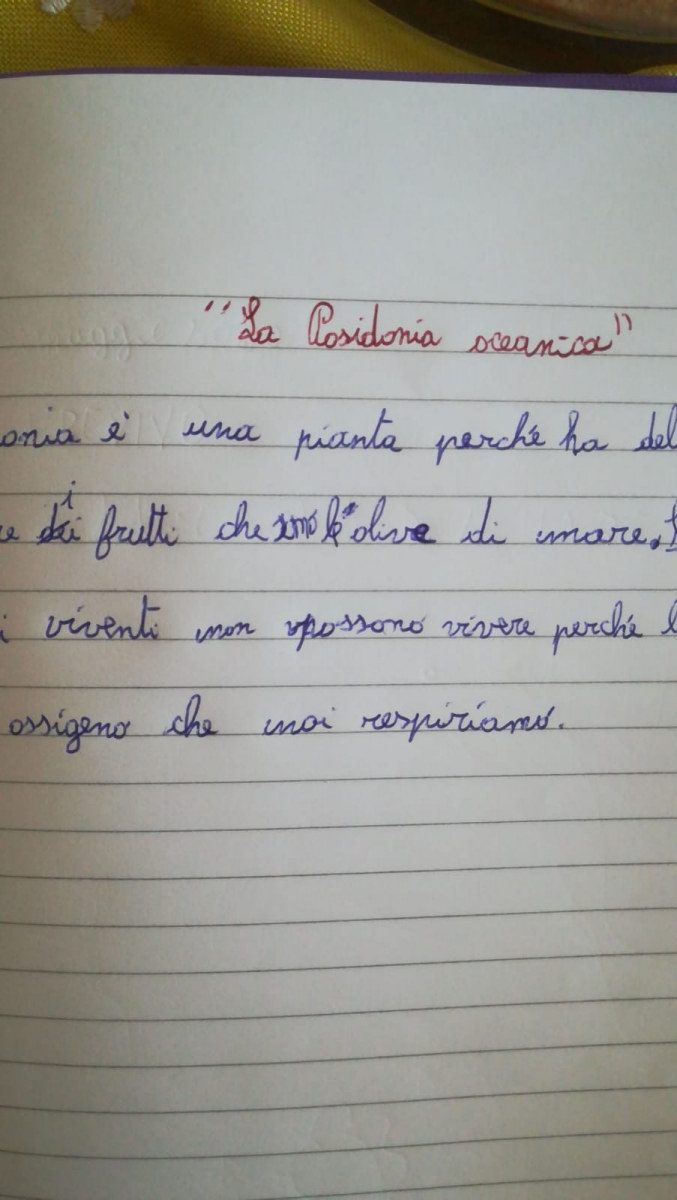 "La Posidonia oceanica"
onia è una pianta perché ha del
e dei frutti che sono le olive di mare.
i viventi non possono vivere perché l
ossigeno che noi respiriamo.